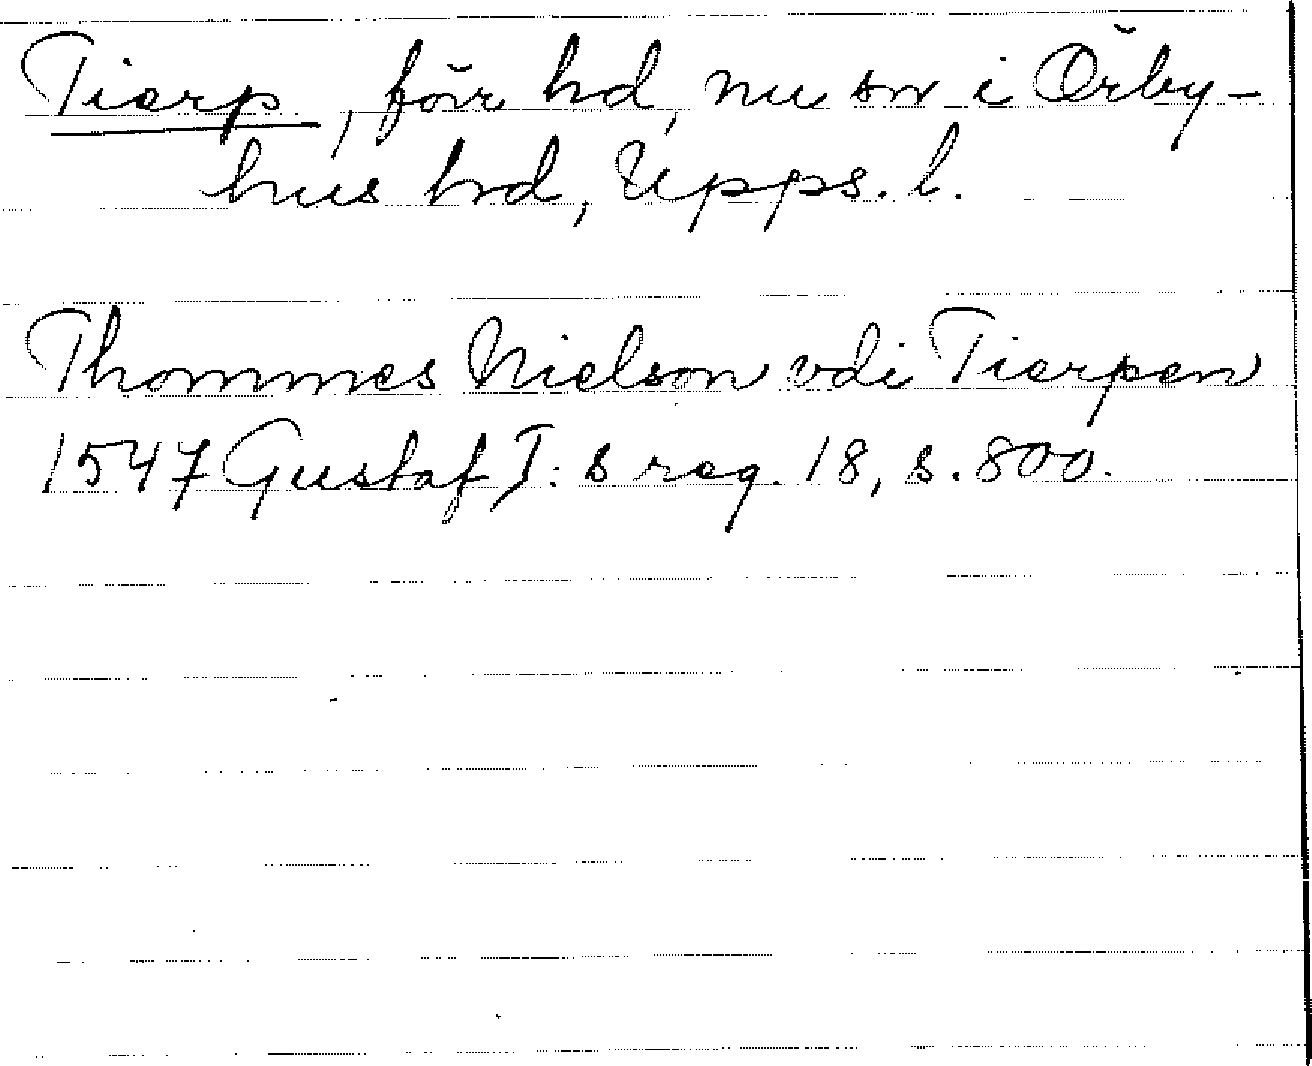 Tierp, förr hd, nu sn i Örby-
hus hrd, Upps. l.
Thommes Nielson vdi Tierpen
1547 Gustaf I:s reg. 18, s. 800.